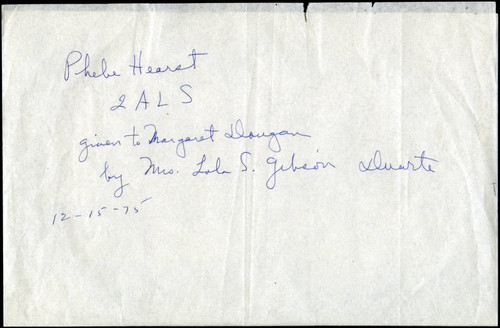 Phebe Hearst
2 ALS
given to Margaret Dougan
by Mrs. Lola S. Gibson Duarte
12-15-75